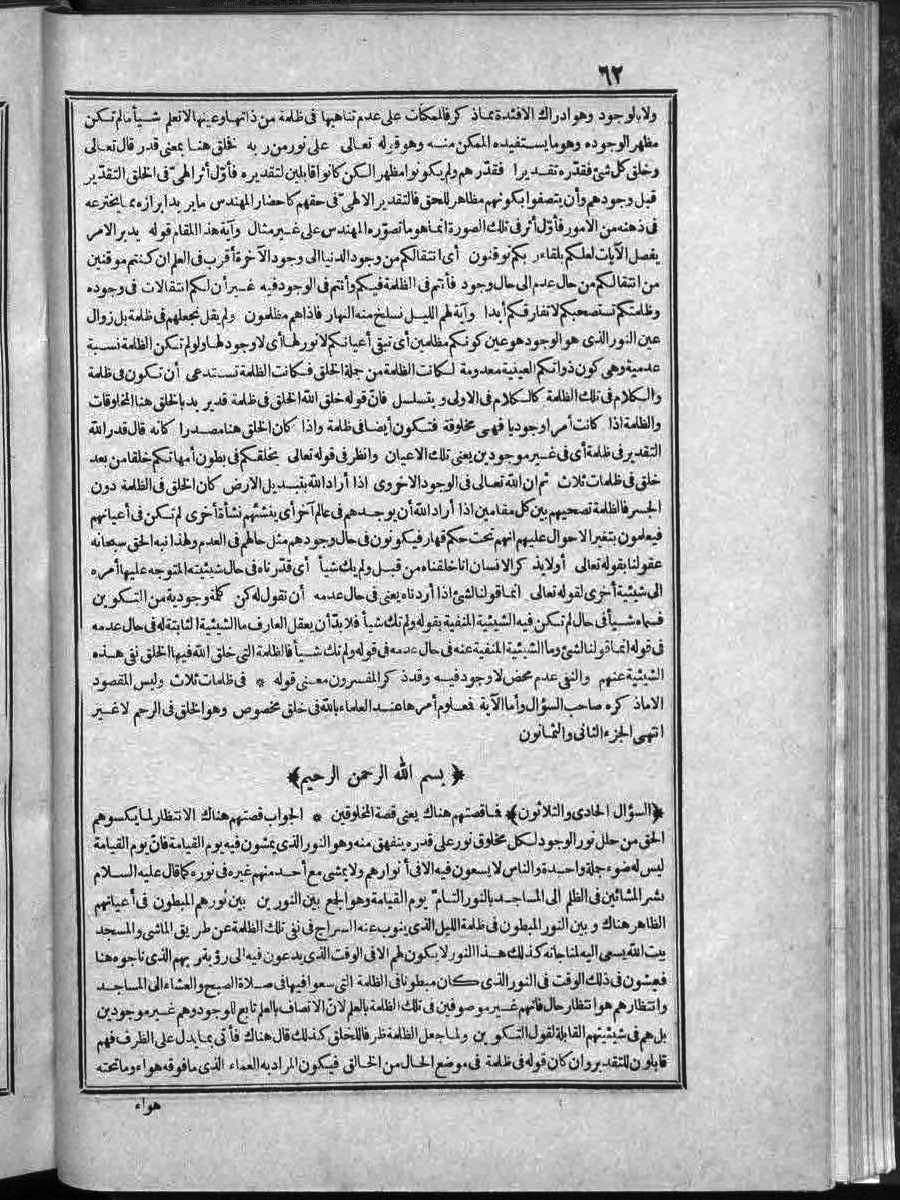 ٦٢
ولا بالوجود وهو ادراك الافئدة مما ذكر فالممكنات على عدم تناهيها فى ظلمة من ذاتها وعينها لا تعلم شيأ مالم تكن
مظهر الوجوده وهو ما يستفيده الممكن منه وهو قوله تعالى على نور من ربه فخلق هنا بمعنى قدر قال تعالى
وخلق كل شئ فقدّره تقديرا فقدّرهم ولم يكونوا مظهرا لكن كانوا قابلين لتقديره فأوّل أثر الهىّ فى الخلق التقدير
قبل وجودهم وأن يتصفوا بكونهم مظاهر للحق فالتقدير الالهىّ فى حقهم كاحضار المهندس ما يريد ابرازه مما يخترعه
فى ذهنه من الأمور فأوّل أثر فى تلك الصورة انما هو ما تصوّره المهندس على غير مثال وآية هذا المقام قوله يدبر الامر
يفصل الآيات لعلكم بلقاء ربكم توقنون أى انتقالكم من وجود الدنيا الى وجود الآخرة أقرب فى العلم ان كنتم موقنين
من انتقالكم من حال عدم الى حال وجود فأنتم فى الظلمة فيكم وأنتم فى الوجود فيه غير أن لكم انتقالات فى وجوده
وظلمتكم تستصحبكم لا تفارقكم أبدا وآية لهم الليل نسلخ منه النهار فاذا هم مظلمون ولم يقل نجعلهم فى ظلمة بل زوال
عين النور الذى هو الوجود هو عين كونكم مظلمين أى تبقى أعيانكم لا نور لها أى لا وجود لها ولو لم تكن الظلمة نسبة
عدمية وهى كون ذواتكم العينية معدومة لكانت الظلمة من جملة الخلق فكانت الظلمة تستدعى أن تكون فى ظلمة
والكلام فى تلك الظلمة كالكلام فى الاولى ويتسلسل فانّ قوله خلق الله الخلق فى ظلمة قد يريد بالخلق هنا المخلوقات
والظلمة اذا كانت أمرا وجوديا فهى مخلوقة فتكون أيضا فى ظلمة واذا كان الخلق هنا مصدرا كأنه قال قدر الله
التقدير فى ظلمة أى فى غير موجودين يعنى تلك الاعيان وانظر فى قوله تعالى يخلقكم فى بطون أمهاتكم خلقا من بعد
خلق فى ظلمات ثلاث ثم ان الله تعالى فى الوجود الاخروى اذا أراد الله بتبديل الارض كان الخلق فى الظلمة دون
الجسر فالظلمة تصحبهم بين كل مقامين اذا أراد الله أن يوجدهم فى عالم آخر أى ينشئهم نشأة أخرى لم تكن فى أعيانهم
فيعلمون بتغير الاحوال عليهم انهم تحت حكم قهار فيكونون فى حال وجودهم مثل حالهم فى العدم ولهذا نبه الحق سبحانه
عقولنا بقوله تعالى أولا يذكر الانسان انا خلقناه من قبل ولم يك شيأ أى قدّرناه فى حال شيئيته المتوجه عليها أمره
الى شيئية أخرى لقوله تعالى انما قولنا لشئ اذا أردناه يعنى فى حال عدمه أن نقول له كن كلمة وجودية من التكوين
فسماه شيأ فى حال لم تكن فيه الشيئية المنفية بقوله ولم تك شيأ فلا بدّ أن يعقل العارف ما الشيئية الثابتة له فى حال عدمه
فى قوله انما قولنا لشئ وما الشيئية المنفية عنه فى حال عدمه فى قوله ولم تك شيأ فالظلمة التى خلق الله فيها الخلق نفى هذه
الشيئية عنهم والنفى عدم محض لا وجود فيه وقد ذكر المفسرون معنى قوله * فى ظلمات ثلاث وليس المقصود
الا ما ذكره صاحب السؤال وأما الآية فمعلوم أمرها عند العلماء بالله فى خلق مخصوص وهو الخلق فى الرحم لا غير
انتهى الجزء الثانى والثمانون
﴿بسم الله الرحمن الرحيم﴾
﴿السؤال الحادى والثلاثون﴾ فما قصتهم هناك يعنى قصة المخلوقين * الجواب قصتهم هناك الانتظار لما يكسوهم
الحق من حلل نور الوجود لكل مخلوق نور على قدره ينفهق منه وهو النور الذى يمشون فيه يوم القيامة فانّ يوم القيامة
ليس له ضوء جملة واحدة والناس لا يسعون فيه الا فى أنوارهم ولا يمشى مع أحد منهم غيره فى نوره كما قال عليه السلام
بشر المشائين فى الظلم الى المساجد بالنور التامّ يوم القيامة وهو الجمع بين النورين بين نورهم المبطون فى أعيانهم
الظاهر هناك وبين النور المبطون فى ظلمة الليل الذى ينوب عنه السراج فى نفى تلك الظلمة عن طريق الماشى والمسجد
بيت الله يسعى اليه لمناجاته كذلك هذا النور لا يكون لهم الا فى الوقت الذى يدعون فيه الى رؤية ربهم الذى ناجوه هنا
فيمشون فى ذلك الوقت فى النور الذى كان مبطونا فى الظلمة التى سعوا فيها فى صلاة الصبح والعشاء الى المساجد
وانتظارهم هو انتظار حال فانهم غير موصوفين فى تلك الظلمة بالعلم لانّ الاتصاف بالعلم تابع للوجود وهم غير موجودين
بل هم فى شيئيتهم القابلة لقول التكوين ولما جعل الظلمة ظرفا للخلق كذلك قال هناك فأتى بما يدل على الظرف فهم
قابلون للتقدير وان كان قوله فى ظلمة فى موضع الحال من الخالق فيكون المراد به العماء الذى ما فوقه هواء وما تحته
هواء